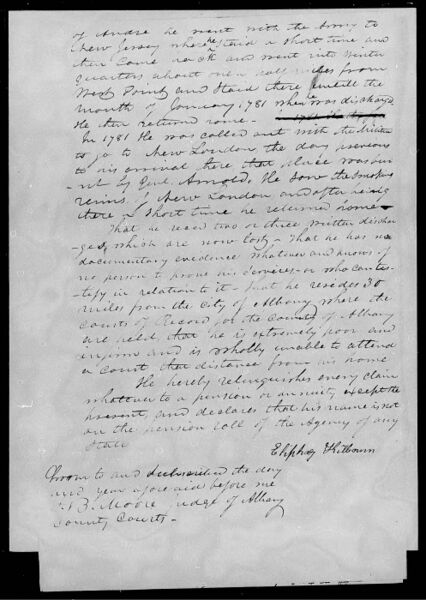 of Andre he went with the Army to
New Jersey where he staid a short time and
then came back and went into winter
quarters about one half miles from
West Point and Staid there untill the
month of January 1781 when he was discharged
He then returned home.
In 1781 He was called out with the militia
to go to New London, the day previous
to his arrival there that place was bur
nt by Genl. Arnold, He saw the smoking
ruins of New London and after being
there a short time he returned home
That he recd two or three written dischar
-ges, which are now lost - That he has no
documentary evidence whatever and knows of
no person to prove his services or who can tes-
-tify in relation to it - that he resides 30
miles from the City of Albany where the
Courts of Record for the County of Albany
are held, that he is extremely poor and
infirm and is wholly unable to attend
a Court that distance from his home
He hereby relinquishes every claim
whatever to a pension or annuity except the
present, and declares that his name is not
on the pension roll of the Agency of any
State
Eliphaz Kilbourn
Sworn to and Subscribed the day
and year aforesaid before me
Moore Judge of Albany
County Courts -